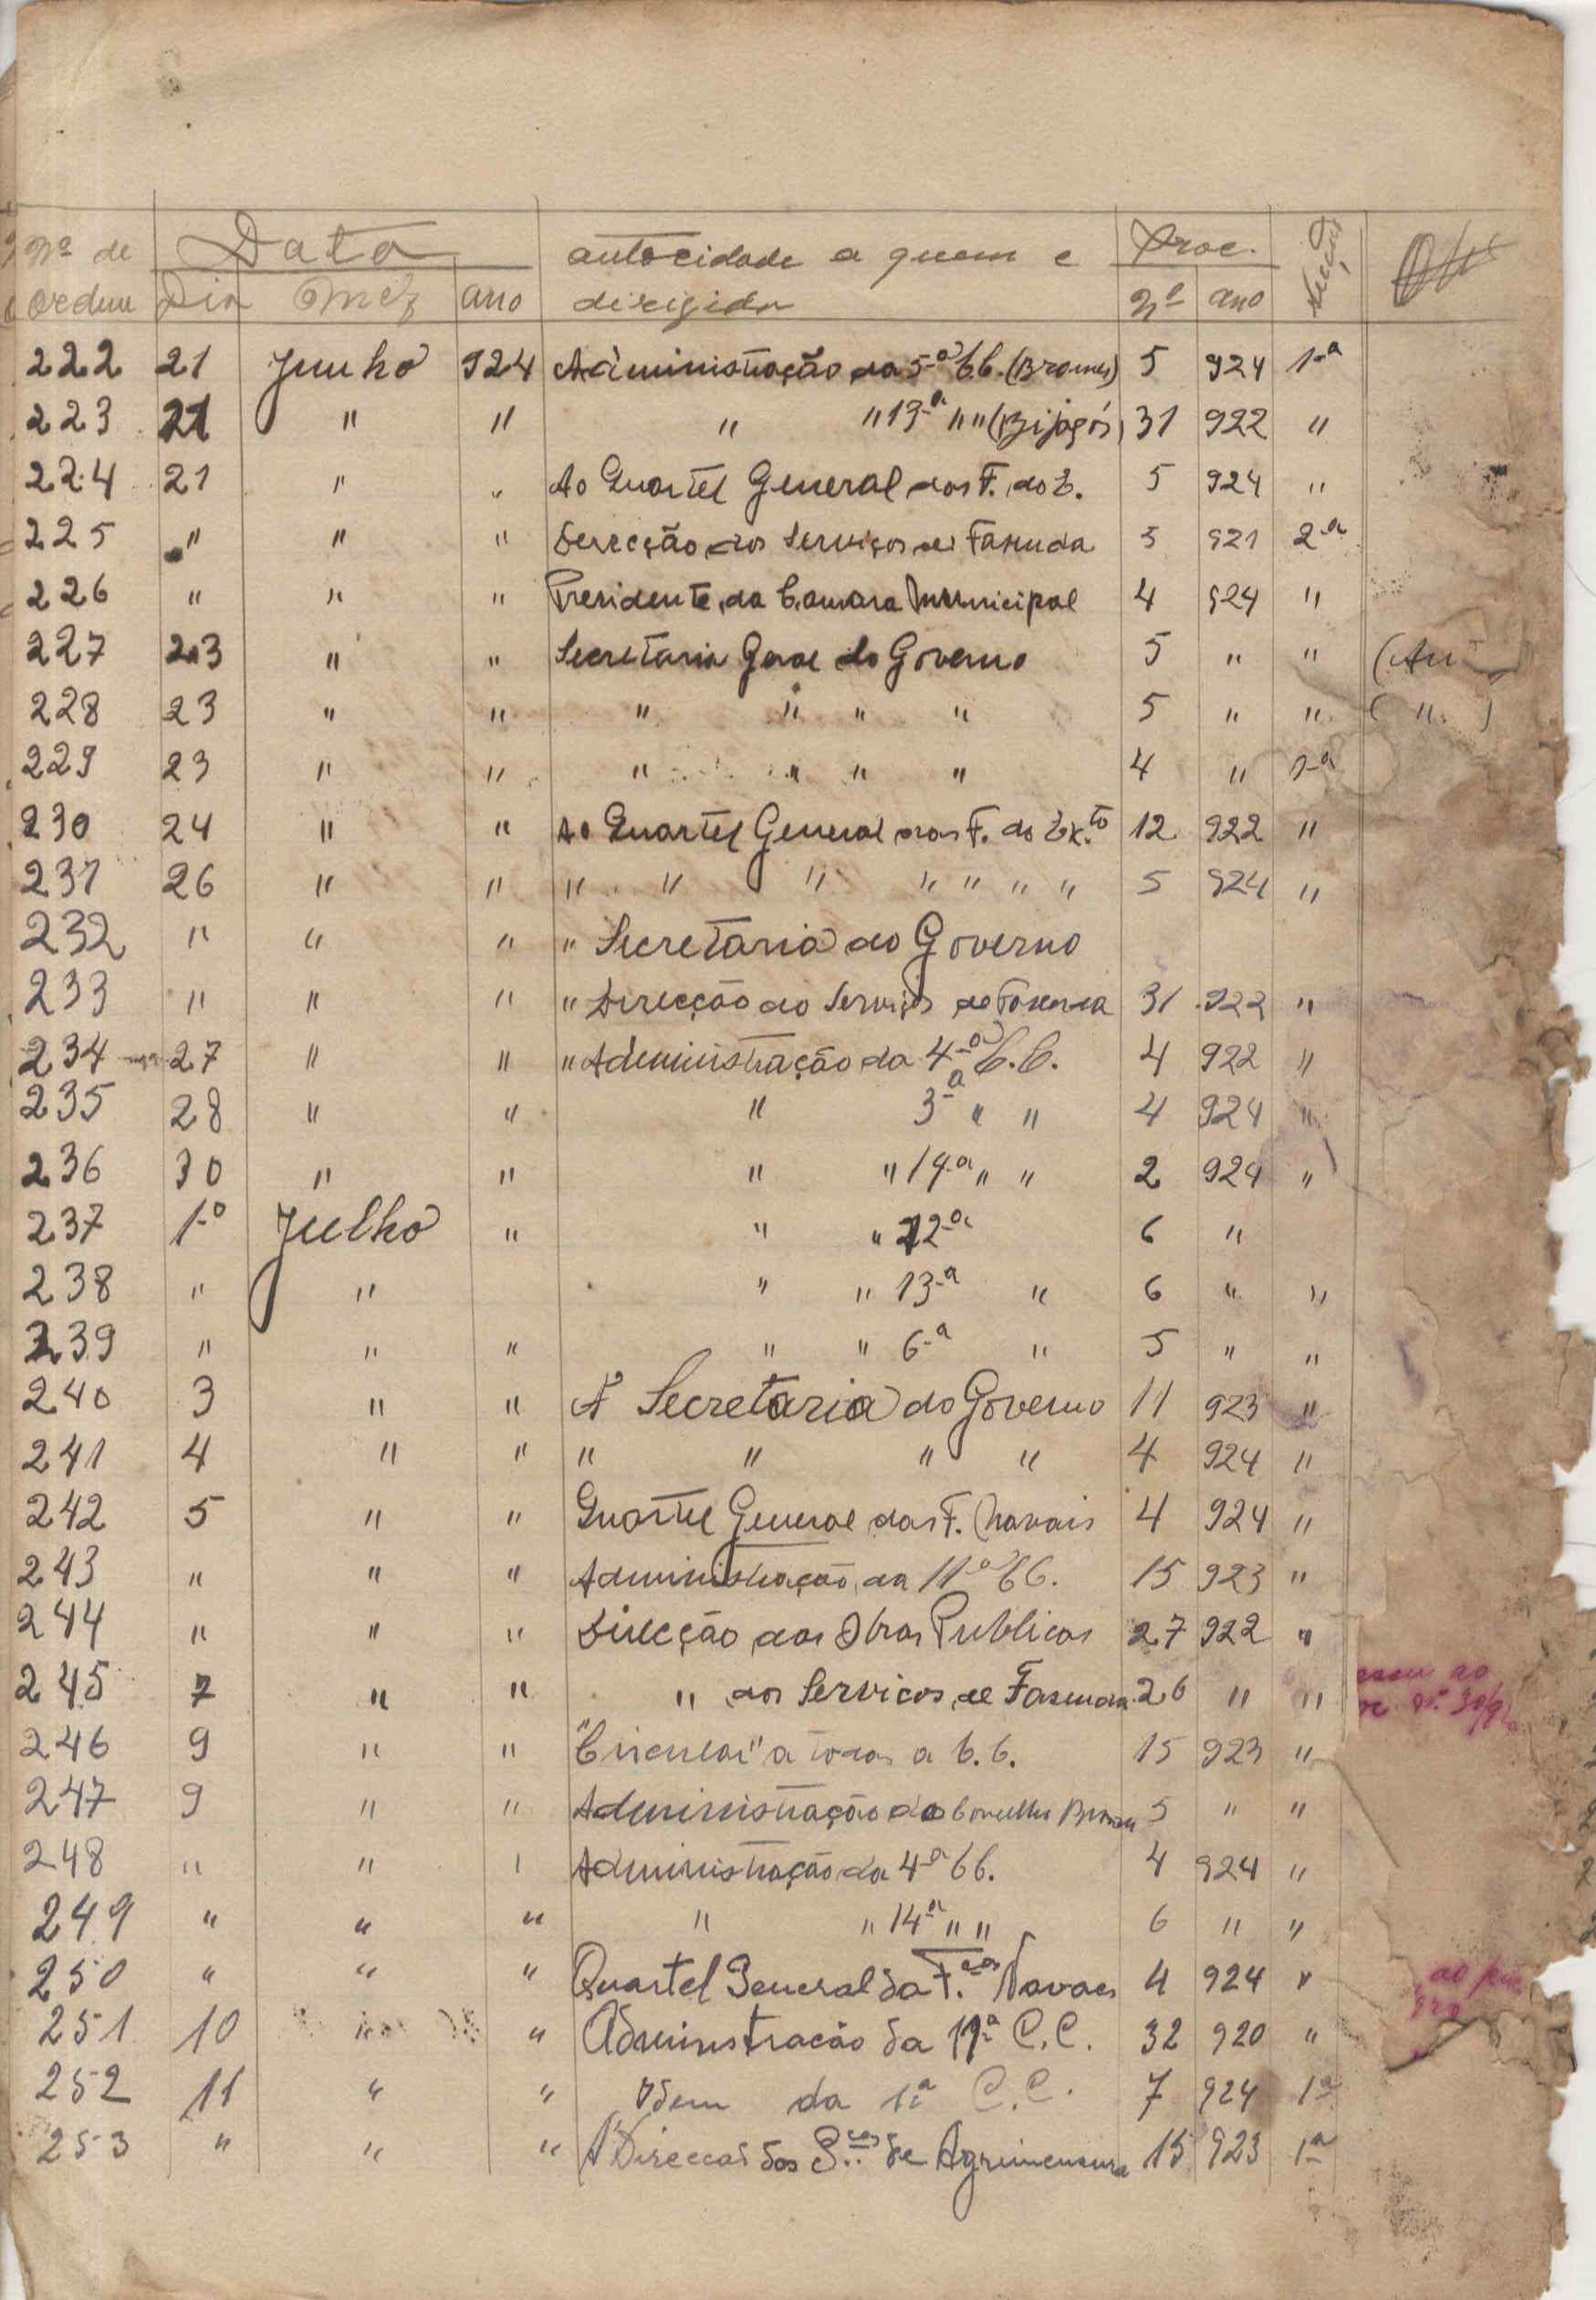 Nº de Data autoridade a quem e Proc.
ordem Dia Mez ano dirigida nº ano
222 21 Junho 924 Administração da 5-a C.C. (Brames) 5 924 1-a
223 21 " " " " 13-a " " (Bijagós) 31 922 "
224 21 " " Ao Quartel General das F. do E. 5 924 "
225 " " " Direcção dos Serviços de Fazenda 5 921 2-a
226 " " " Presidente da Camara Municipal 4 924 "
227 23 " " Secretaria Geral do Governo 5 " "
228 23 " " " " " " 5 " " ( " )
229 23 " " " " " " 4 " 1-a
230 24 " " Ao Quartel General das F. do Ex.to 12 922 "
231 26 " " " " " " " " " 5 924 "
232 " " " " Secretaria do Governo
233 " " " " Direcção do Serviços de Fazenda 31 922 "
234 27 " " " Administração da 4-a C.C. 4 922 "
235 28 " " " 3-a " " 4 924 "
236 30 " " " " 14-a " " 2 924 "
237 1-o Julho " " " 12-a 6 "
238 " " " " 13-a " 6 " "
239 " " " " " 6-a " 5 " "
240 3 " " A Secretaria do Governo 11 923 "
241 4 " " " " " " 4 924 "
242 5 " " Quartel General das F. Navais 4 924 "
243 " " " Administração da 11-a C.C. 15 923 "
244 " " " Direcção das Obras Publicas 27 922 "
245 7 " " " dos Serviços de Fazenda 26 " "
246 9 " " "Circular" a todas a C.C. 15 923 "
247 9 " " Administração do Concelho 5 " "
248 " " " Administração da 4-a C.C. 4 924 "
249 " " " " " 14-a " " 6 " "
250 " " " Quartel General da F.ças Navaes 4 924 "
251 10 " " Administracão da 11ª C.C. 32 920 "
252 11 " " Idem da 1ª C.C. 7 924 1ª
253 " " " A Direccão dos S.ços de Agrimensura 15 923 1ª